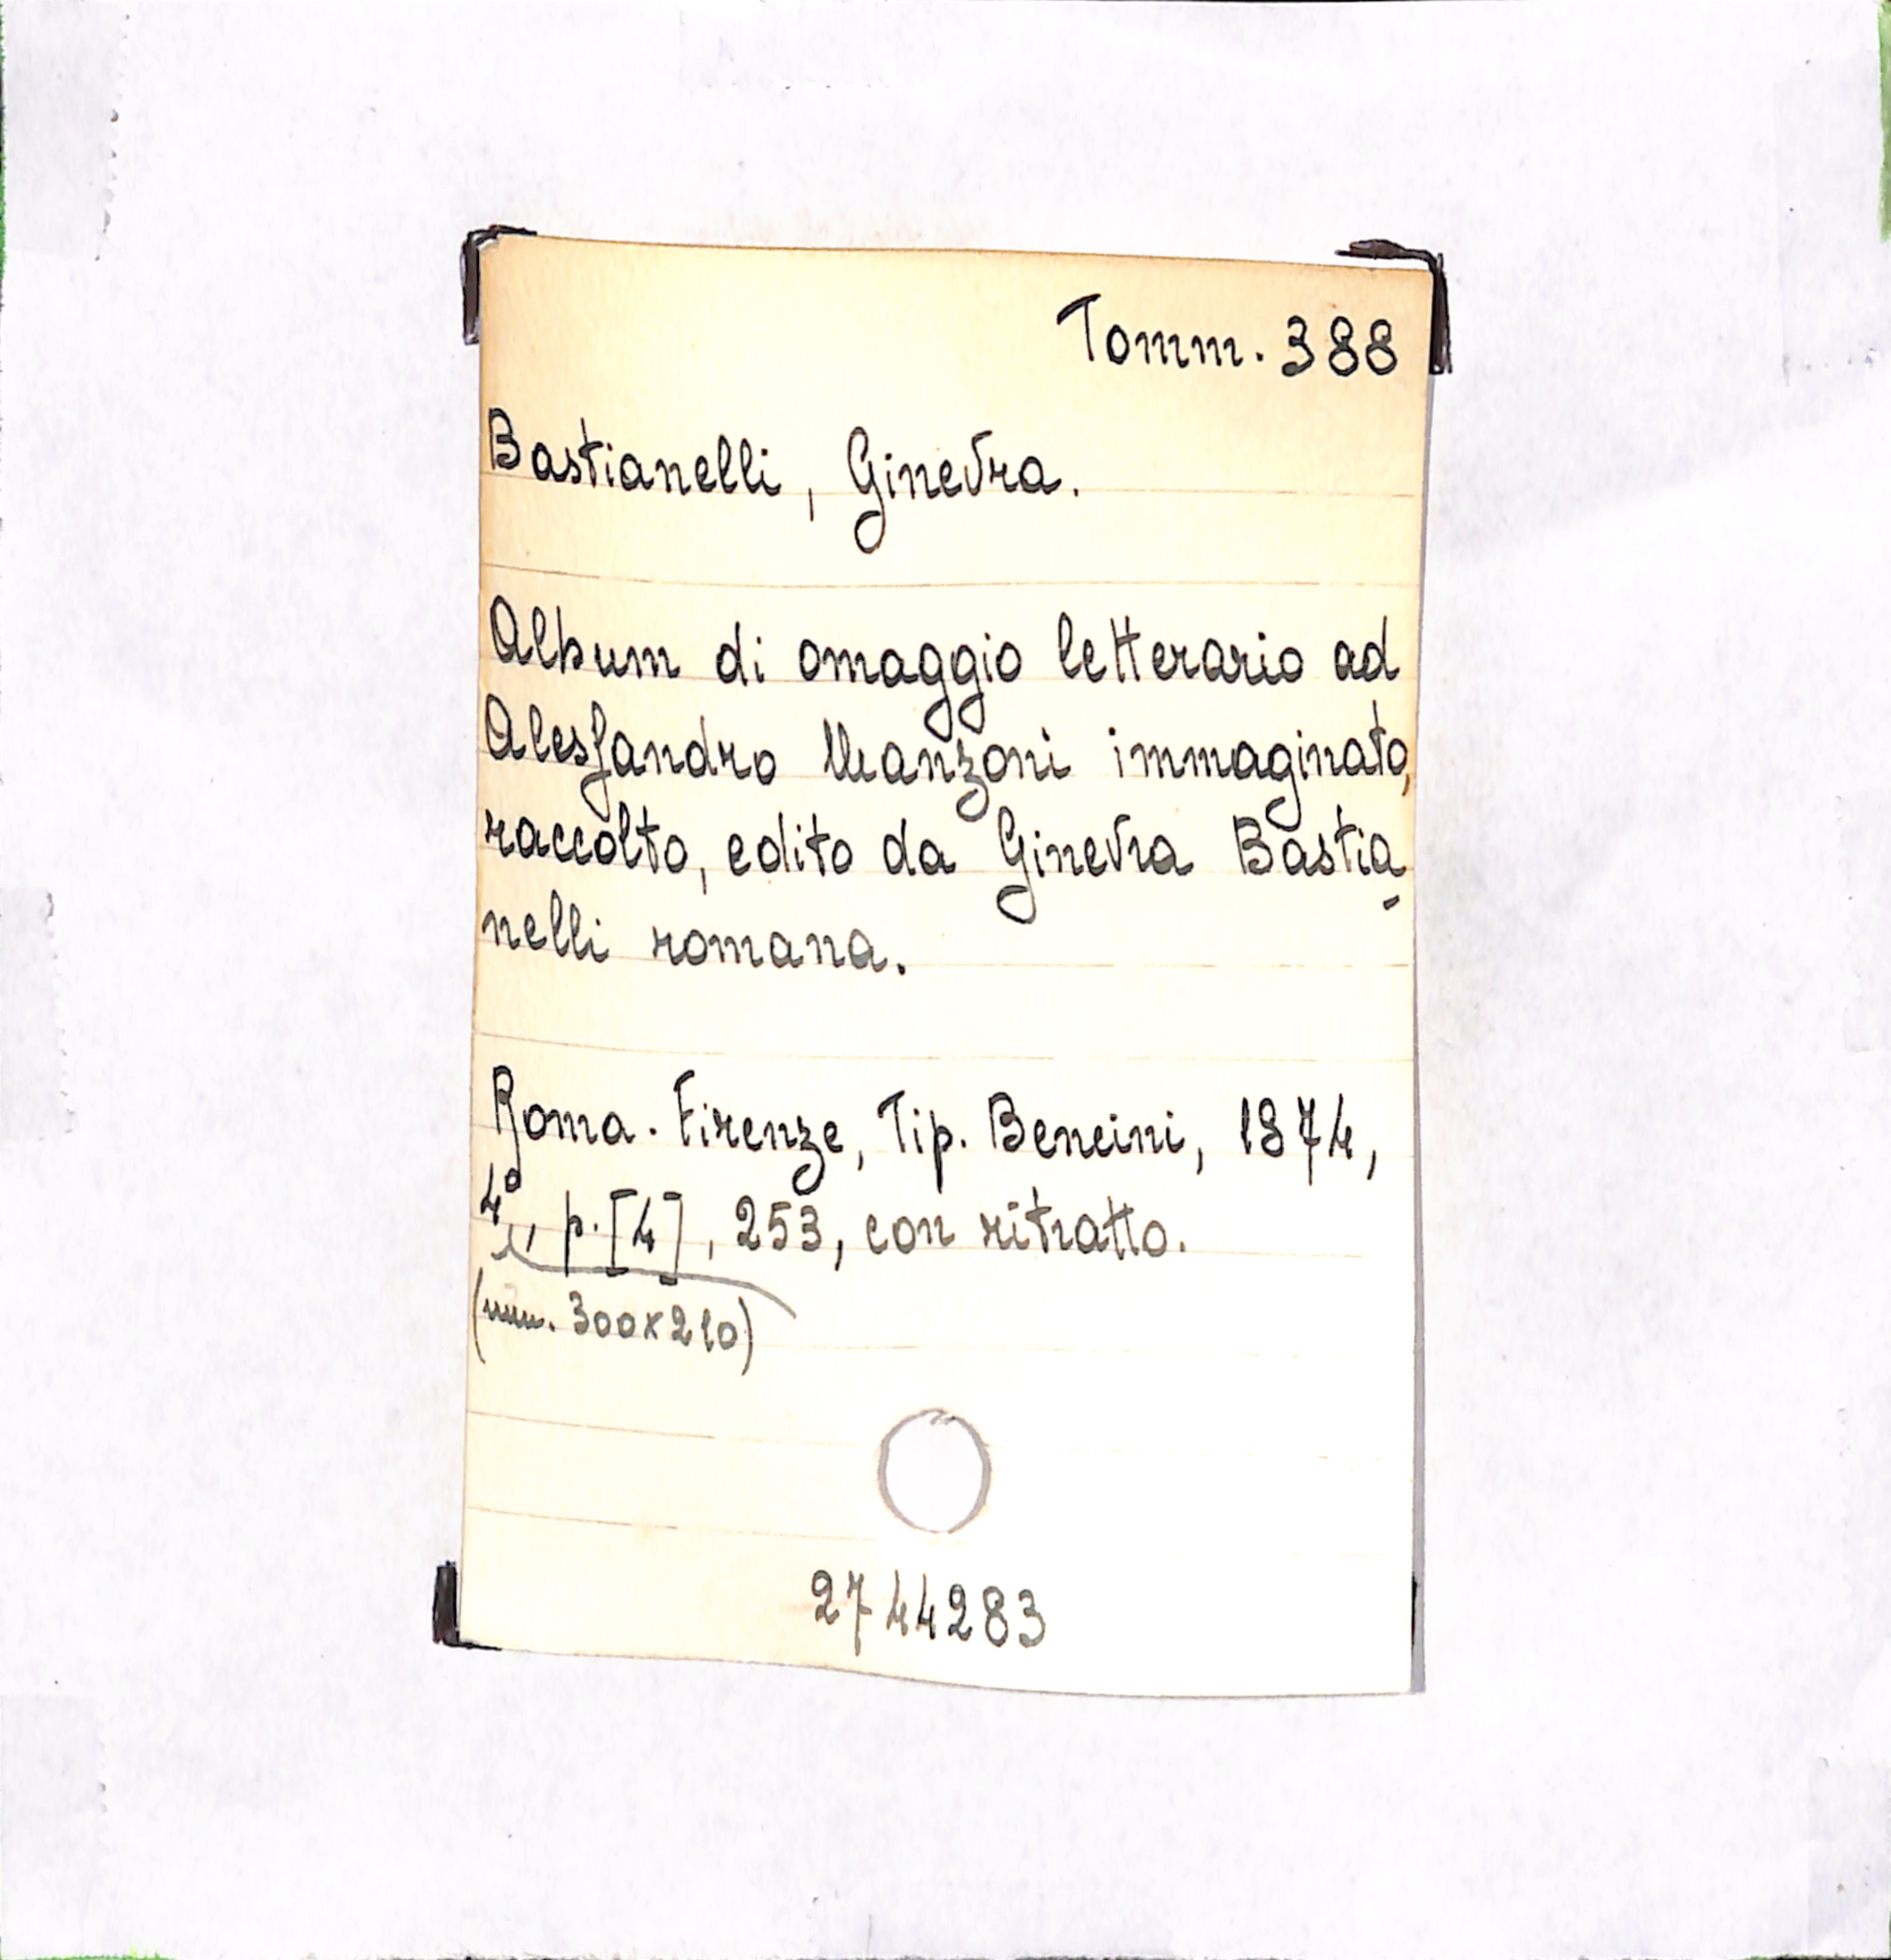 Tomm. 388
Bastianelli, Ginevra.
Album di omaggio letterario ad
Alessandro Manzoni immaginato,
raccolto, edito da Ginevra Bastia-
nelli romana.
Roma - Firenze, Tip. Bencini, 1874,
4°, p. [4], 253, con ritratto.
(mm. 300x210)
2744283